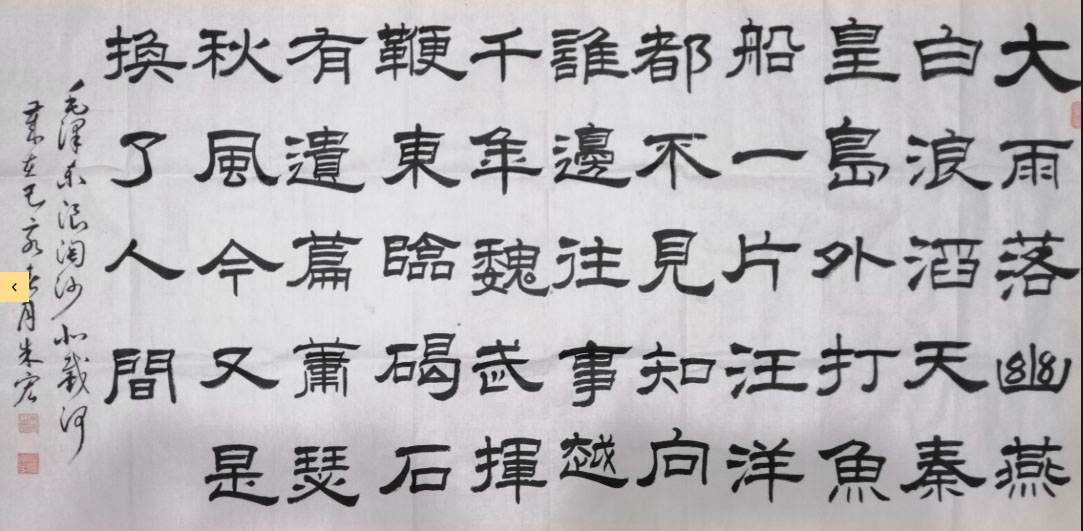 大雨落幽燕
白浪滔天秦
皇島外打魚
船一片汪洋
都不見知向
誰邊往事越
千年魏武揮
鞭東臨碣石
有遺篇蕭瑟
秋風今又是
換了人間
毛澤东浪淘沙北戴河
歲在己亥月朱宏